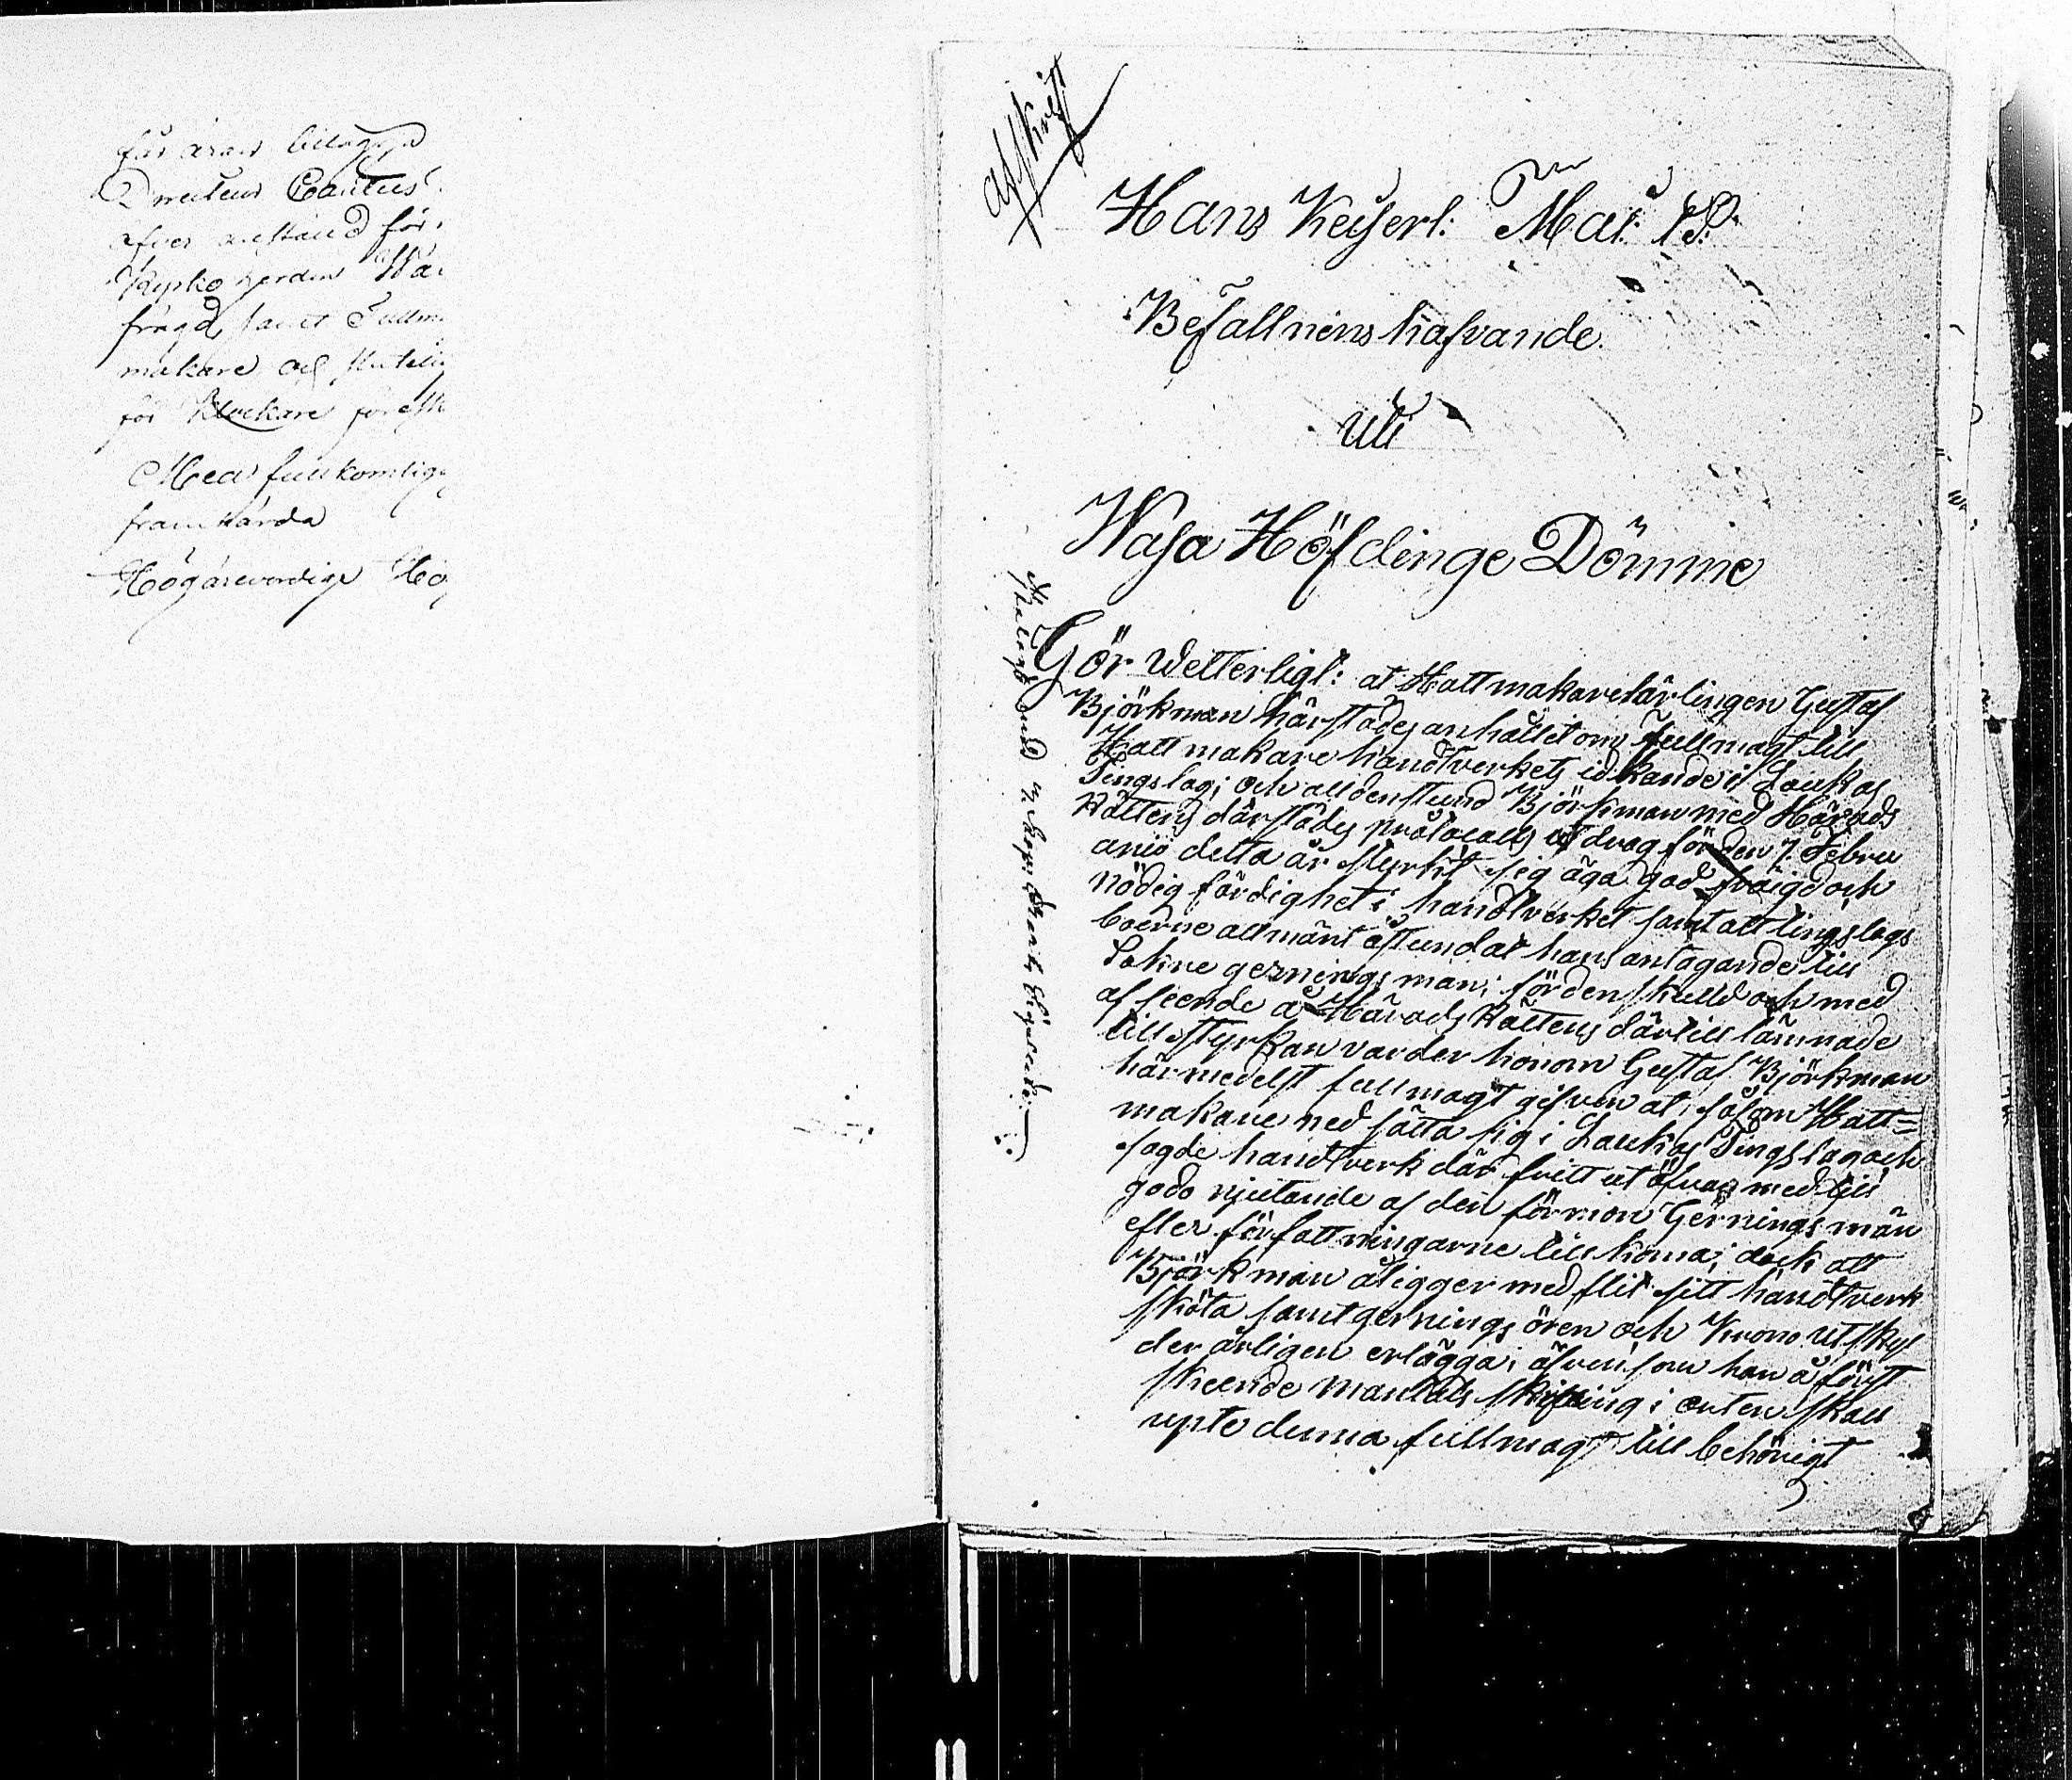 får äran bilägga
Directeur Cautus
öfver anstånd för
Kyrkoherden Wa
frägd, samt Fullm
makare och
för Klockare
Med fullkomlig
framhärda
Högärevördige Hög
Afskrift
Hans Keyserl: Maj:ts
Befallninshafvande
Uti
Wasa Höfdinge Dömme
Gör Wetterligt: at Hattmakarelärlingen Gustaf
Björkman härstädes anhållit om fullmagt till
Hattmakare handtverkets idkande i Laukas
Tingslag; och alldenstund Björkman med Härads
Rättens därstädes protocolls utdrag för den 7. Febru
arii detta år styrkt sig äga god frägd och
nödig färdighet i handtverket samt att tingslags
boerne allmänt åstundat hans antagande till
Sokne gernings man; fördenskulld och med
afseende å Härads Rättens därtill lämnade
tillstyrkan varder honom Gustaf Björkman
härmedelst fullmagt gifven at, såsom Hatt=
makare ned sätta sig i Laukas Tingslag och
sagde handtverk där fritt utöfva med till
godo njutande af den förmon Gernings män
efter författningarne tillkoma; dock att
Björkman åligger med flit sitt handtverk
sköta samt gernings ören och Krono utskyl
der årligen erlägga; äfvensom han å först
skeende mantals skrifning i orten skall
upte denna fullmagt till behörigt